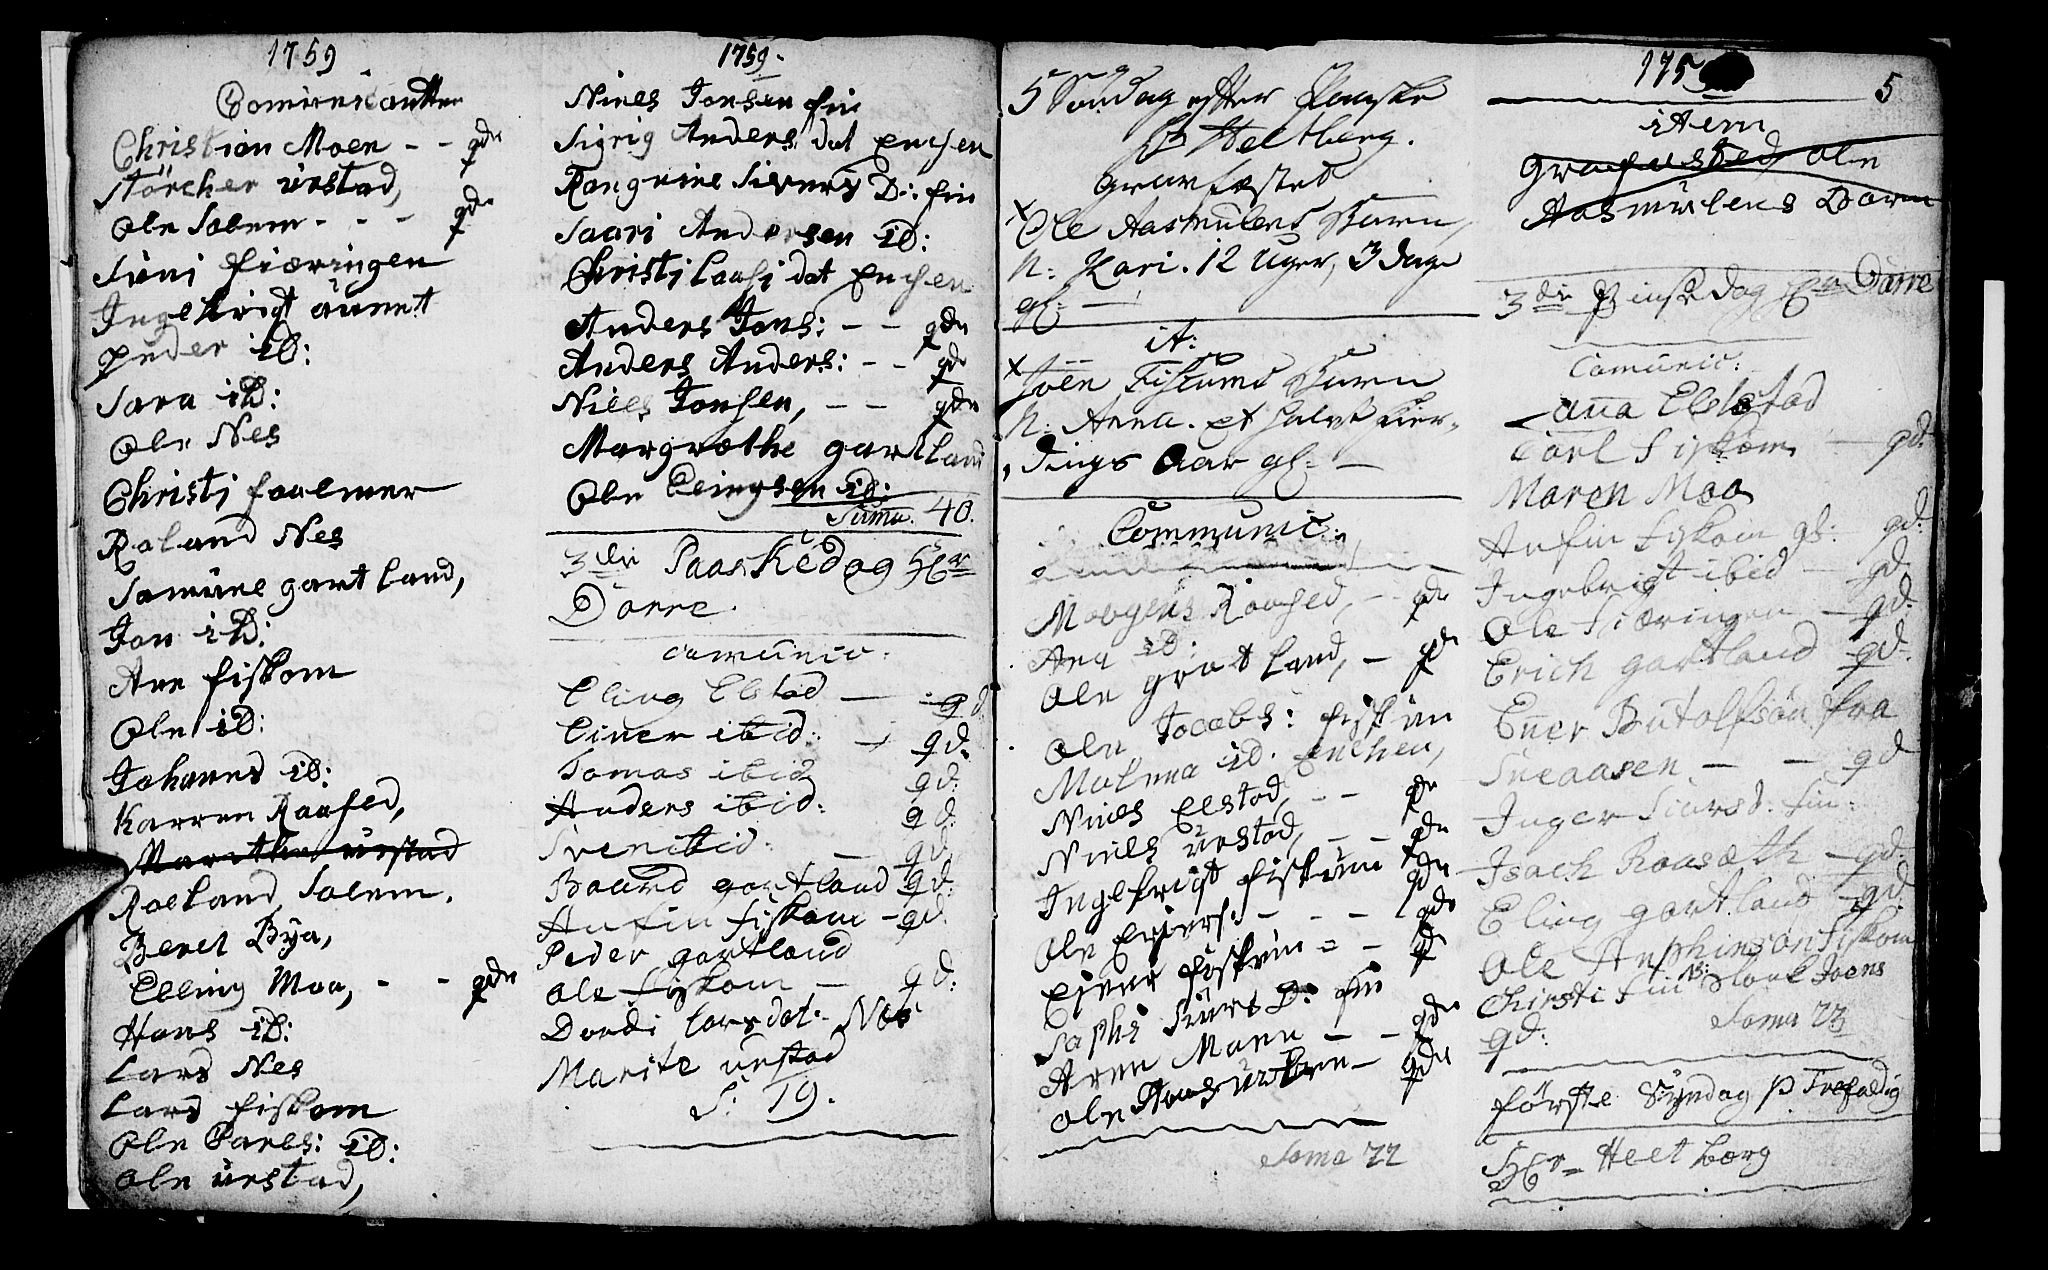 1759
Comunicantter
Christian Moen - - gde
Störcher ürstad,
Ole Solem - - - gde
Siüni fiæringen
Ingebrigt aünet
Peder iD:
Sara iD:
Ole Nes
Christi faulmer
Roland Nes
Samüne gartland,
Jon iD:
Ane fiskom
Ole iD:
Johanes iD:
Karren Raased,
Marithe ürstad
Roeland Solem.
Beret Bÿa,
Elling Moa, - - gde
Hans iD:
Lars Nes
Lars fiskom
Ole Carls: iD:
Ole ürstad,
1759.
Niels Jonsen fin
Sigrig Anders dat Enchen
Rangnine Sivers D: fin
Saari Andersen iD:
Christi Laasi dat Enchen
Anders Jons: - - gde
Anders Anders: - - gde
Niels Jonsen, - - gde
Margrethe gartland
Ole Elingsen iD:
Suma. 40.
3die Paaskedag Hr
Dorre.
Comunic:
Eling Elstad - gd
Einer ibid: - gd.
Tomas ibid gd:
Anders ibid: gd:
Sven ibid: - gd
Baard gartland gd:
Anfin fiskom - gd
Peder gartland
Ole fiskom - gd:
Dordi Larsdat: Nes
Marite urstad
S: 19.
5 Søndag efter Paaske
Hr Heltberg.
Gravfæstet
x Ole Aasmulens Barn,
N: Kari. 12 Uger, 3 dage
gl: -
it:
x Joen Fiskums Barn
N: Anna. et halvt fier-
dings Aar gl: -
Communic:
Mogens Raased, - gde
Ane iD:
Ole gratland, - gde
Ole Jacobs: fiskün
Malena iD. Enchen,
Niels Elstad, - - gde
Niels ürstad, - - gde
Ingebrigt fiskün gde
Ole Ejvers: - - - gde
Ejver fiskün - - gde
Saphi Siürs D: fin
Aren Moen - - gde
Ole Haasürlen - gde
Soma 22
175
5
item
Grafæsted Ole
Aasmülens Barn
3die Pinsedag Hr Dorre
Comünic:
Ana Elstad
Carl Fiskom - gd:
Maren Moa
Anfin Fiskom gl: gd:
Ingebrigt ibid - gd
Ole Fiæringen - gd:
Erich gartland gd:
Ener Butolfsön fra
Sneaasen - - gd
Inger Siursd: Fin:
Isach Raasæth - gd:
Eling gartland - gd
Ole Anphinsön Fiskom
Chirsti Fin NB: Sloel Joens
gd: Soma 23
förste Syndag p Trefoldig
Hr = Heltberg